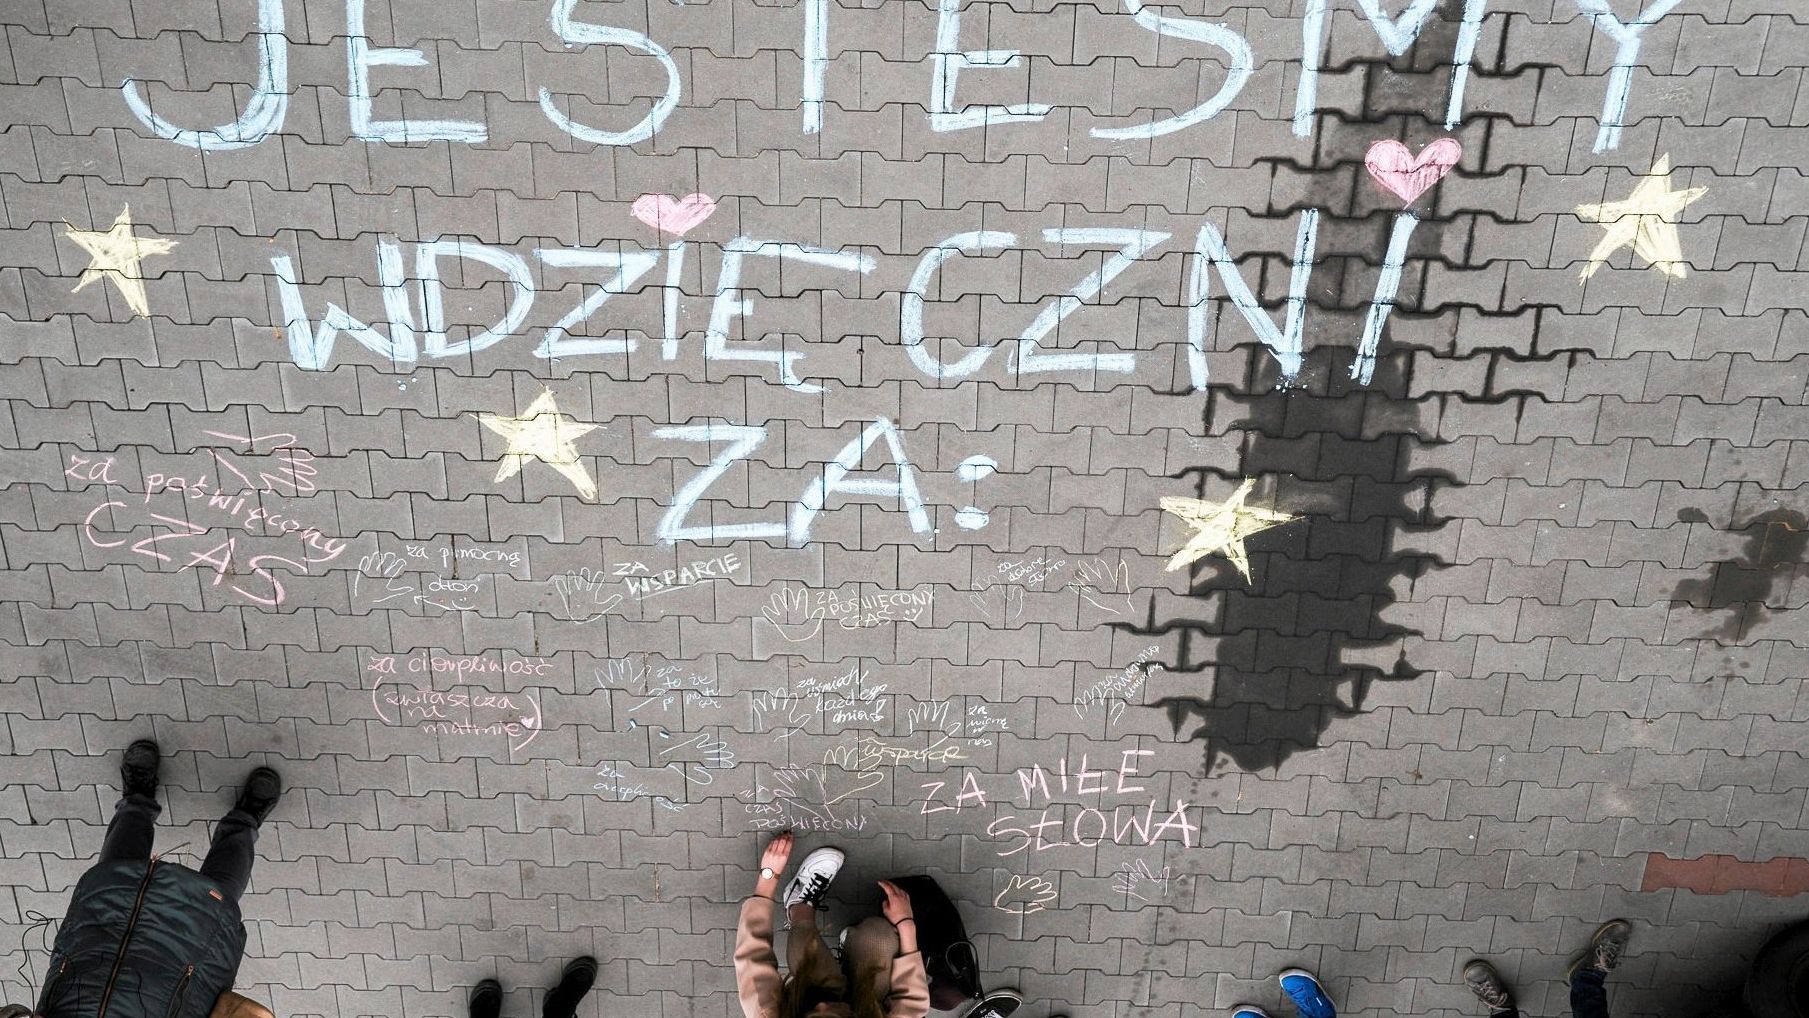 JESTEŚMY
WDZIĘCZNI
ZA:
za poświęcony
CZAS
za pomocną
dłoń
ZA
WSPARCIE
ZA
POŚWIĘCONY
CZAS
za
dobre
słowo
za cierpliwość
(zwłaszcza
na
matmie)
za
to że
za
uśmiech
każdego
dnia!
za
wiarę
w nas
za
wsparcie
za
cierpliwość
ZA
CZAS
POŚWIĘCONY
ZA MIŁE
SŁOWA